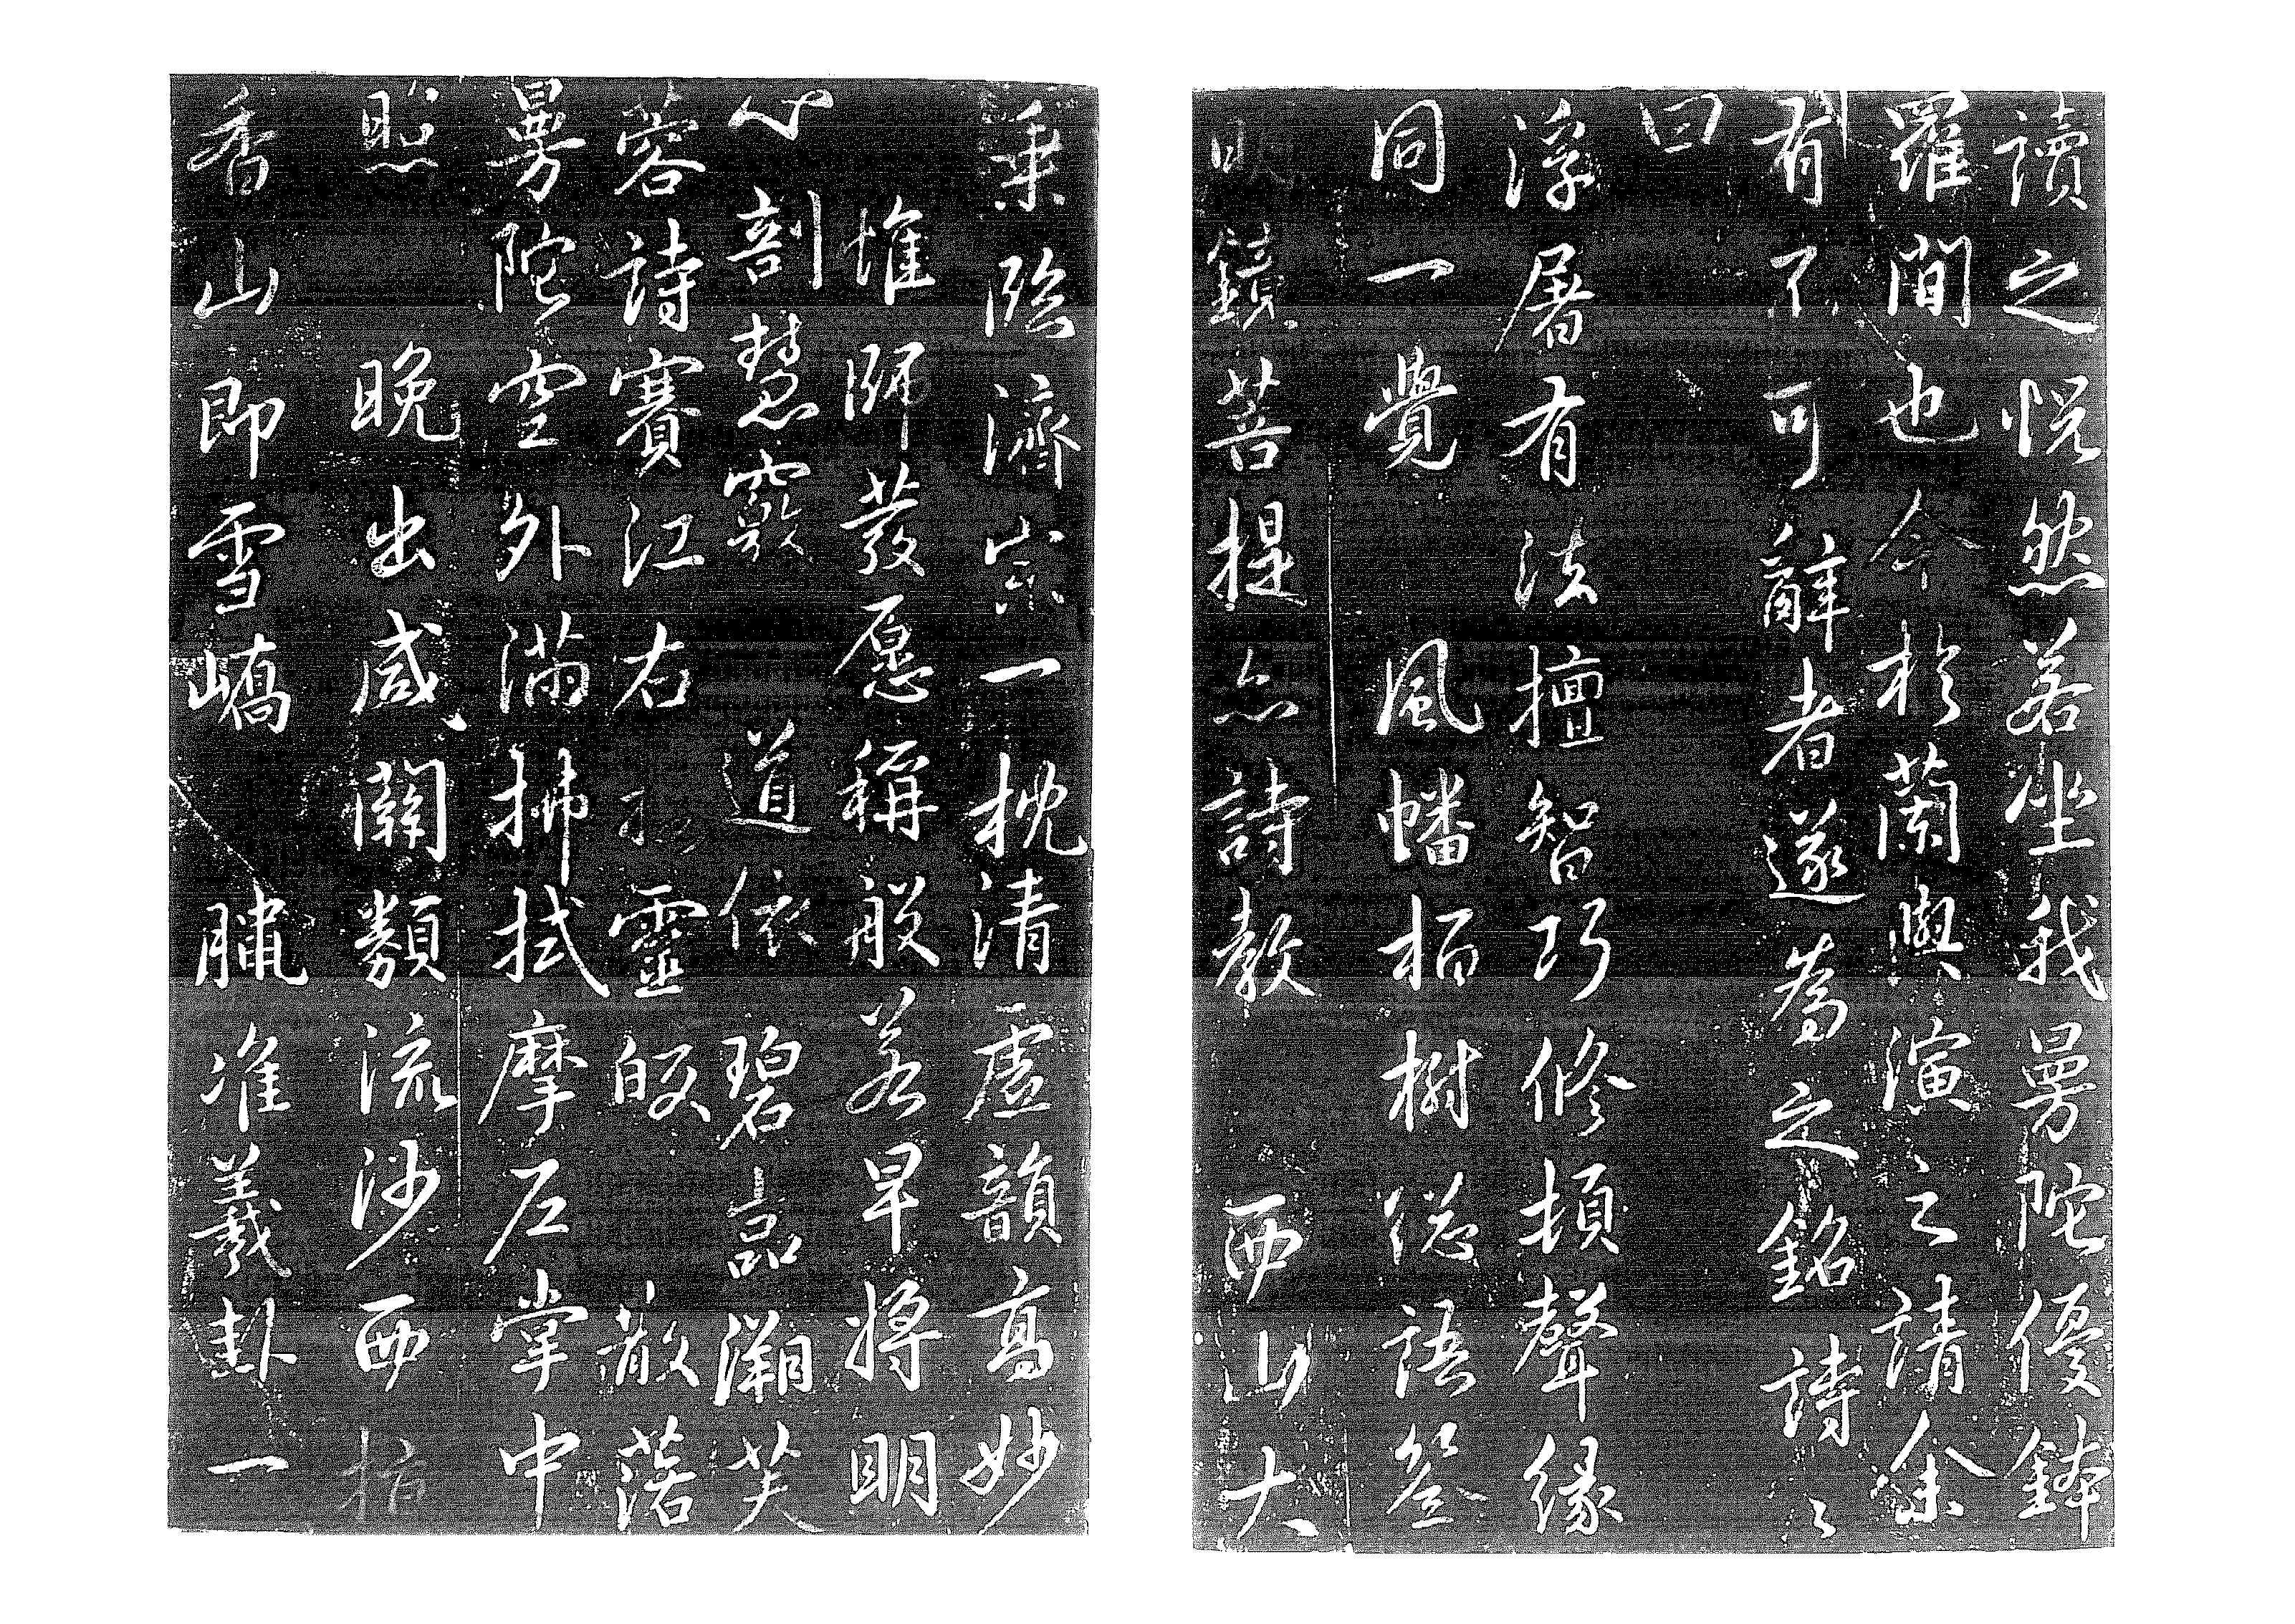 讀之恍然若坐我曼陀優鉢
羅間也今於蘭與演之請余
有不可辭者遂為之銘詩
曰
浮屠有法擅智巧修損聲緣
同一覺 風幡柏樹總語筌
眼鏡菩提亦詩教 西山大
乘臨濟宗一枕清虛韻高妙
惟師發愿稱般若早將明
心剖慧竅 道依碧嵓灝芙
蓉詩賽江右 靈皎 散落
曼陀空外滿拂拭摩尼掌中
照 晚出咸關類流沙西
香山即雪嶠 驌准羲卦一